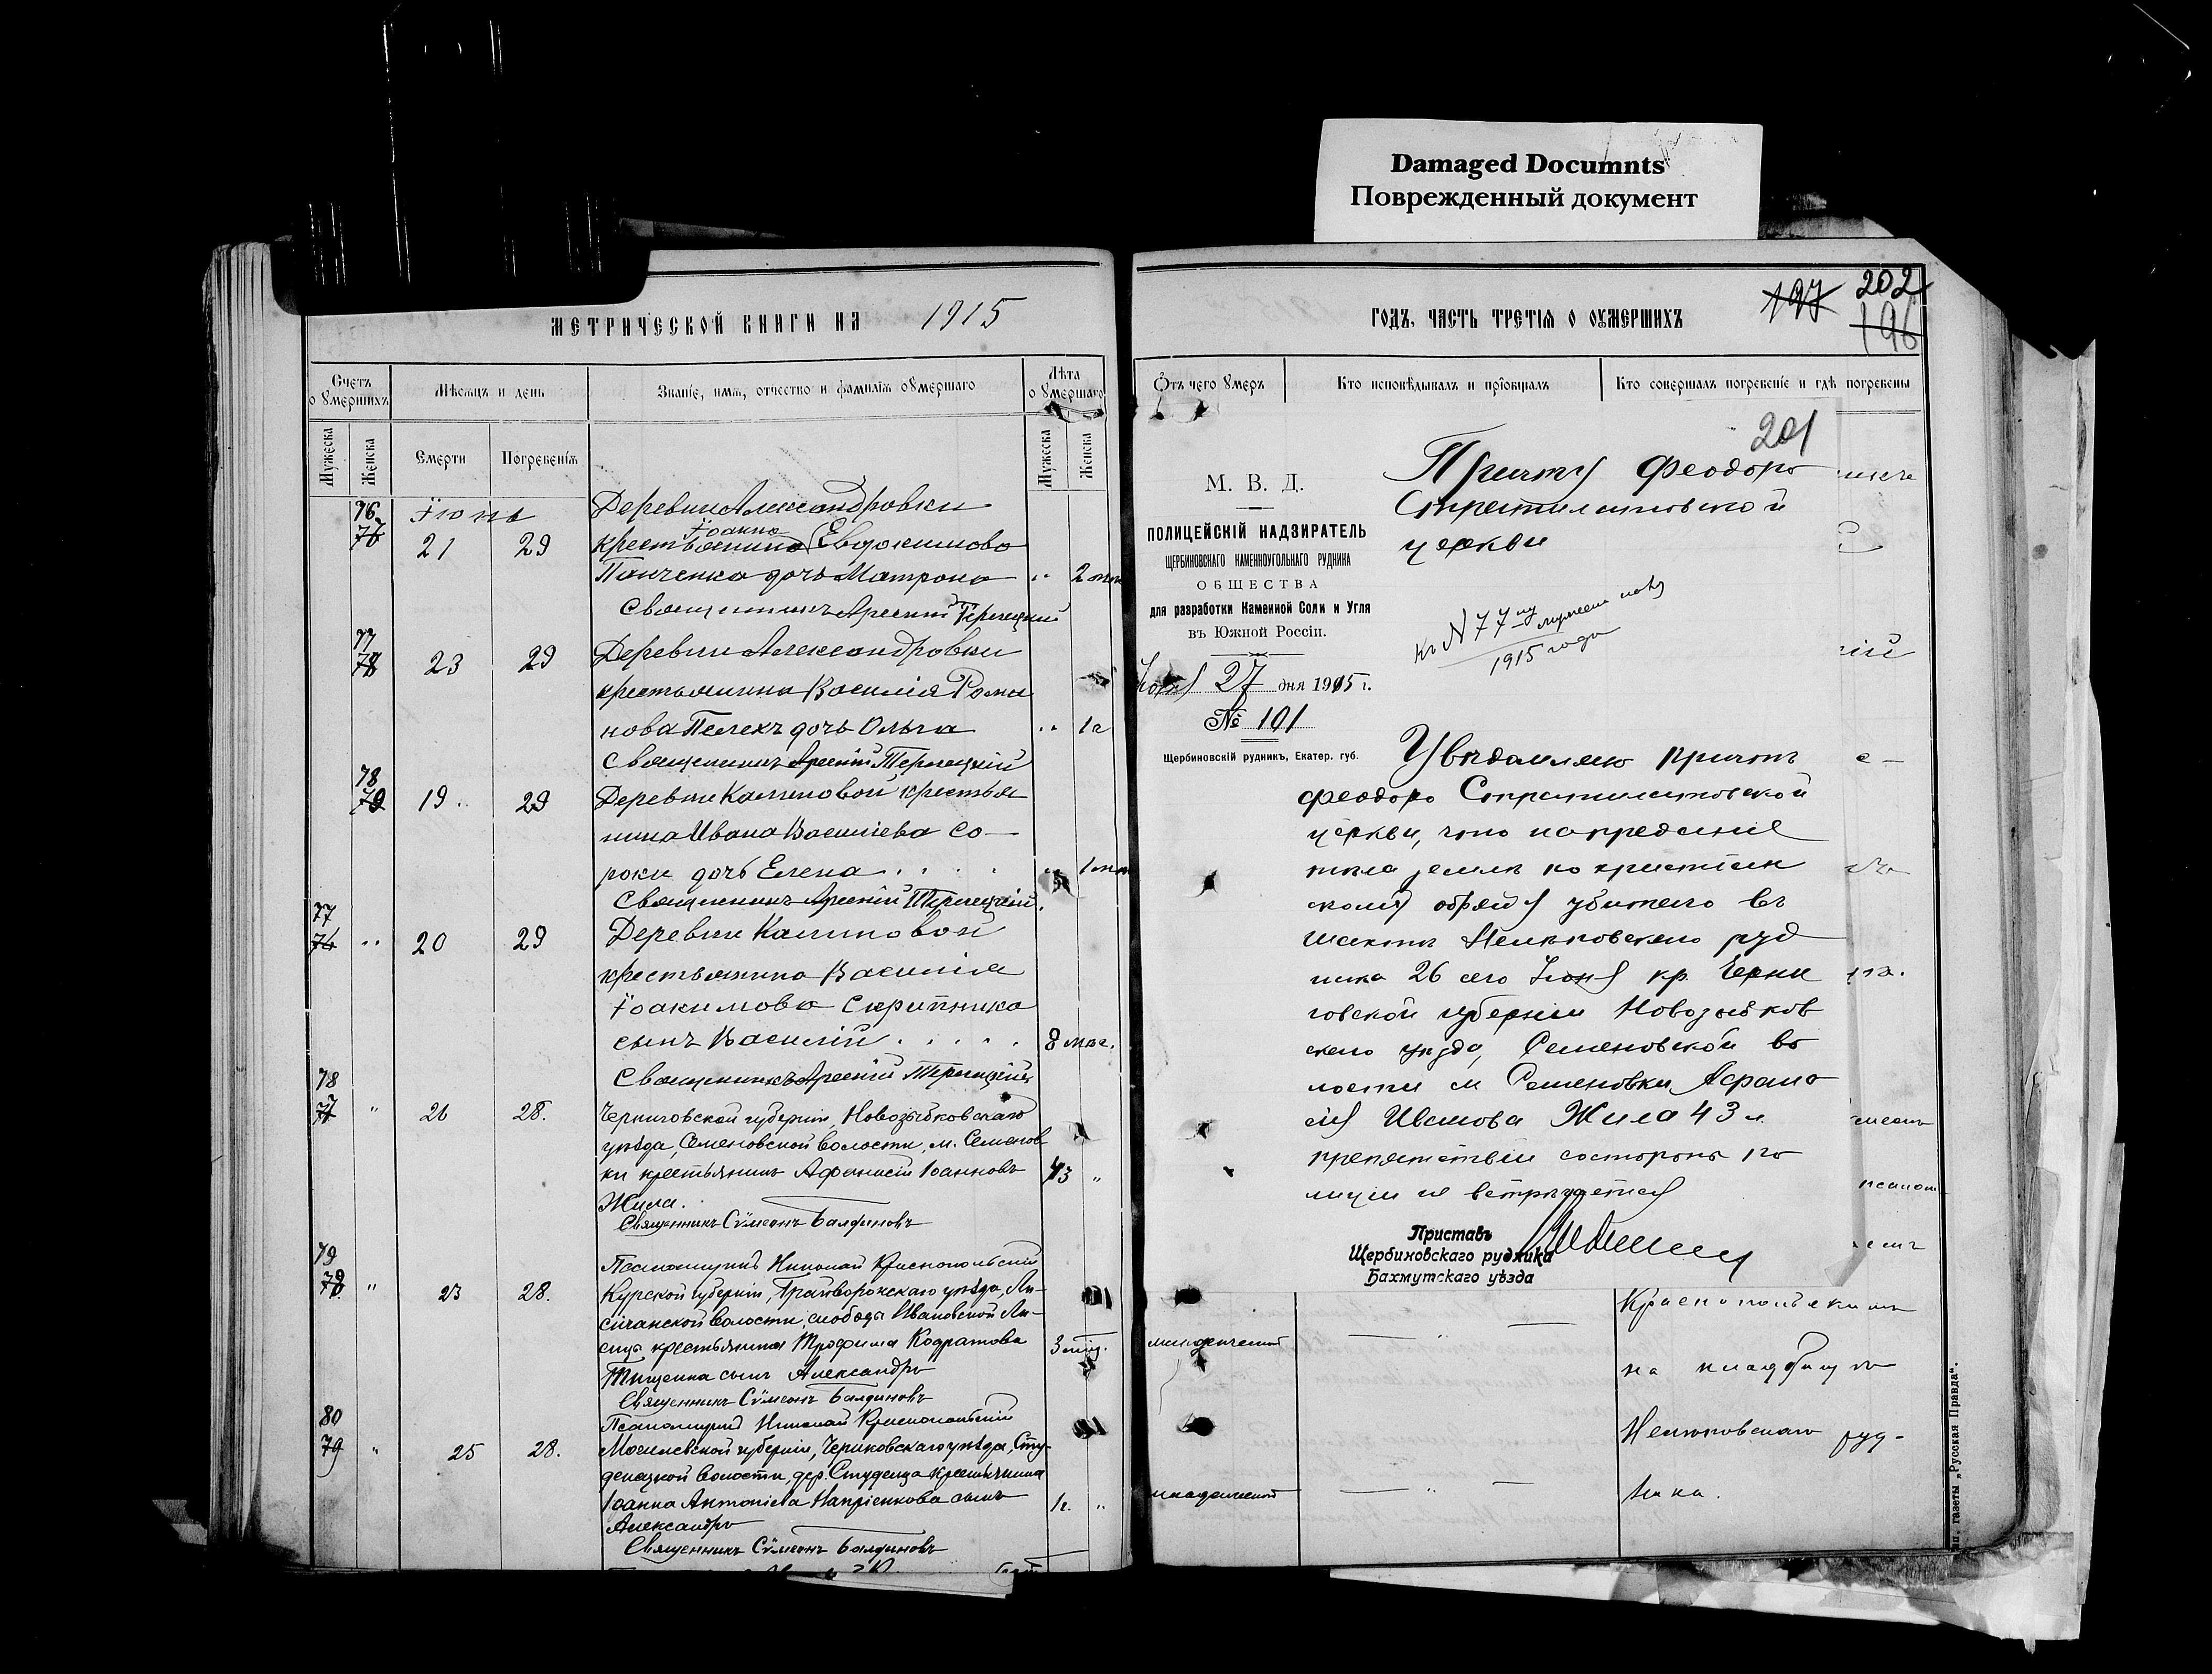 Damaged Documnts
Поврежденный документ
МЕТРИЧЕСКОЙ КНИГИ НА 1915
Счетъ о умершихъ
Мѣсяцъ и день
Званіе, имя, отчество и фамилія умершаго
Лѣта о умершаго
Мужеска
Женска
Смерти
Погребенія
Мужеска
Женска
76 Іюнь Деревни Александровки
76 21 29 крестьянина Іоанна Евдокимова
Панченка дочь Матрона " 2
Священникъ Арсеній Терлецкій
77 Деревни Александровки
78 23 29
крестьянина Василія Рома
нова Пелехъ дочь Ольга " 1 г
Священникъ Арсеній Терлецкій
78 Деревни Калиновой крестья
79 19 29
нина Ивана Васильева Со-
роки дочь Елена " 1
Священникъ Арсеній Терлецкій.
77 Деревни Калиновой
76 " 20 29
крестьянина Василія
Іоакимова Скрипника
сынъ Василій 8 мѣс.
78 Священникъ Арсеній Терлецкій
77 " 26 28. Черниговской губерніи, Новозыбковскаго
уѣзда, Семеновской волости, м. Семенов
ки крестьянинъ Афанасій Іоанновъ 43 "
Жила.
Священникъ Сѵмеонъ Балдиновъ
79 Псаломщикъ Николай Краснопольскій
78 " 23 28. Курской губерніи, Грайворонскаго уѣзда, Ли-
сичанской волости, слободы Ивановской Ли-
сицы крестьянина Трофима Кодратова 3 мѣс.
Тищенка сынъ Александръ
Священникъ Сѵмеонъ Балдиновъ
80 Псаломщикъ Николай Краснопольскій
79 " 25 28. Могилевской губерніи, Чериковскаго уѣзда, Сту-
денецкой волости, дер. Студенца крестьянина
Іоанна Антоніева Напріенкова сынъ 1 г. "
Александръ
Священникъ Сѵмеонъ Балдиновъ
ГОДЪ, ЧАСТЬ ТРЕТІЯ О УМЕРШИХЪ
197 202
196
Отъ чего умеръ
Кто исповѣдывалъ и пріобщалъ
Кто совершалъ погребеніе и гдѣ погребены
201
М. В. Д.
ПОЛИЦЕЙСКІЙ НАДЗИРАТЕЛЬ
ЩЕРБИНОВСКАГО КАМЕННОУГОЛЬНАГО РУДНИКА
ОБЩЕСТВА
для разработки Каменной Соли и Угля
въ Южной Россіи.
Іюня 27 дня 1915 г.
№ 101
Щербиновскій рудникъ, Екатер. губ.
Причту Феодоро
Стратилатовской
церкви
къ N 77 му
1915 года
Увѣдомляю причтъ
Феодоро Стратилатовской
церкви, что на преданіе
тѣла землѣ по христіан
скому обряду убитаго въ
шахтѣ Нелѣповскаго руд
ника 26 сего Іюня кр. Черни
говской губерніи Новозыбков
скаго уѣзда, Семеновской во
лости м Семеновки Афана
сія Иванова Жила 43 л.
препятствій со стороны по
лиціи не встрѣчается
Приставъ
Щербиновскаго рудника
Бахмутскаго уѣзда
Краснопольскимъ
младенческой
на кладбищѣ
Нелѣповскаго руд-
младенческой
ника.
газеты „Русская Правда“.